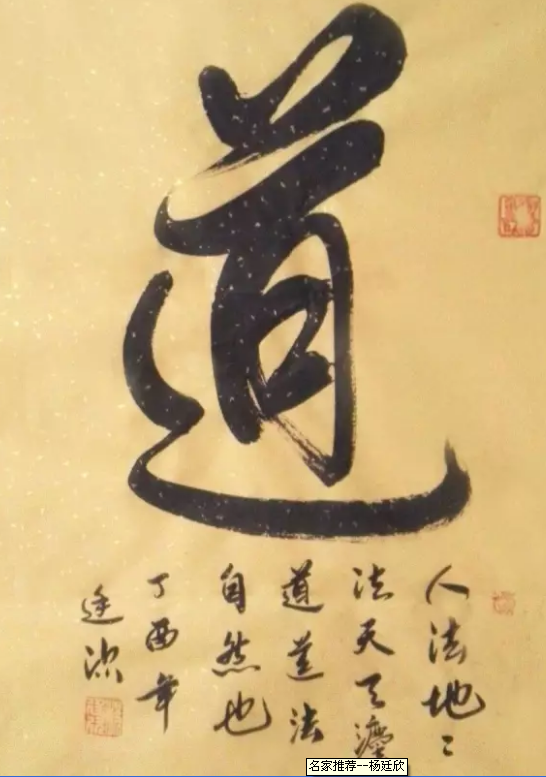 道
人法地〻
法天天灋
道道法
自然也
丁酉年
廷欣
名家推荐--杨廷欣